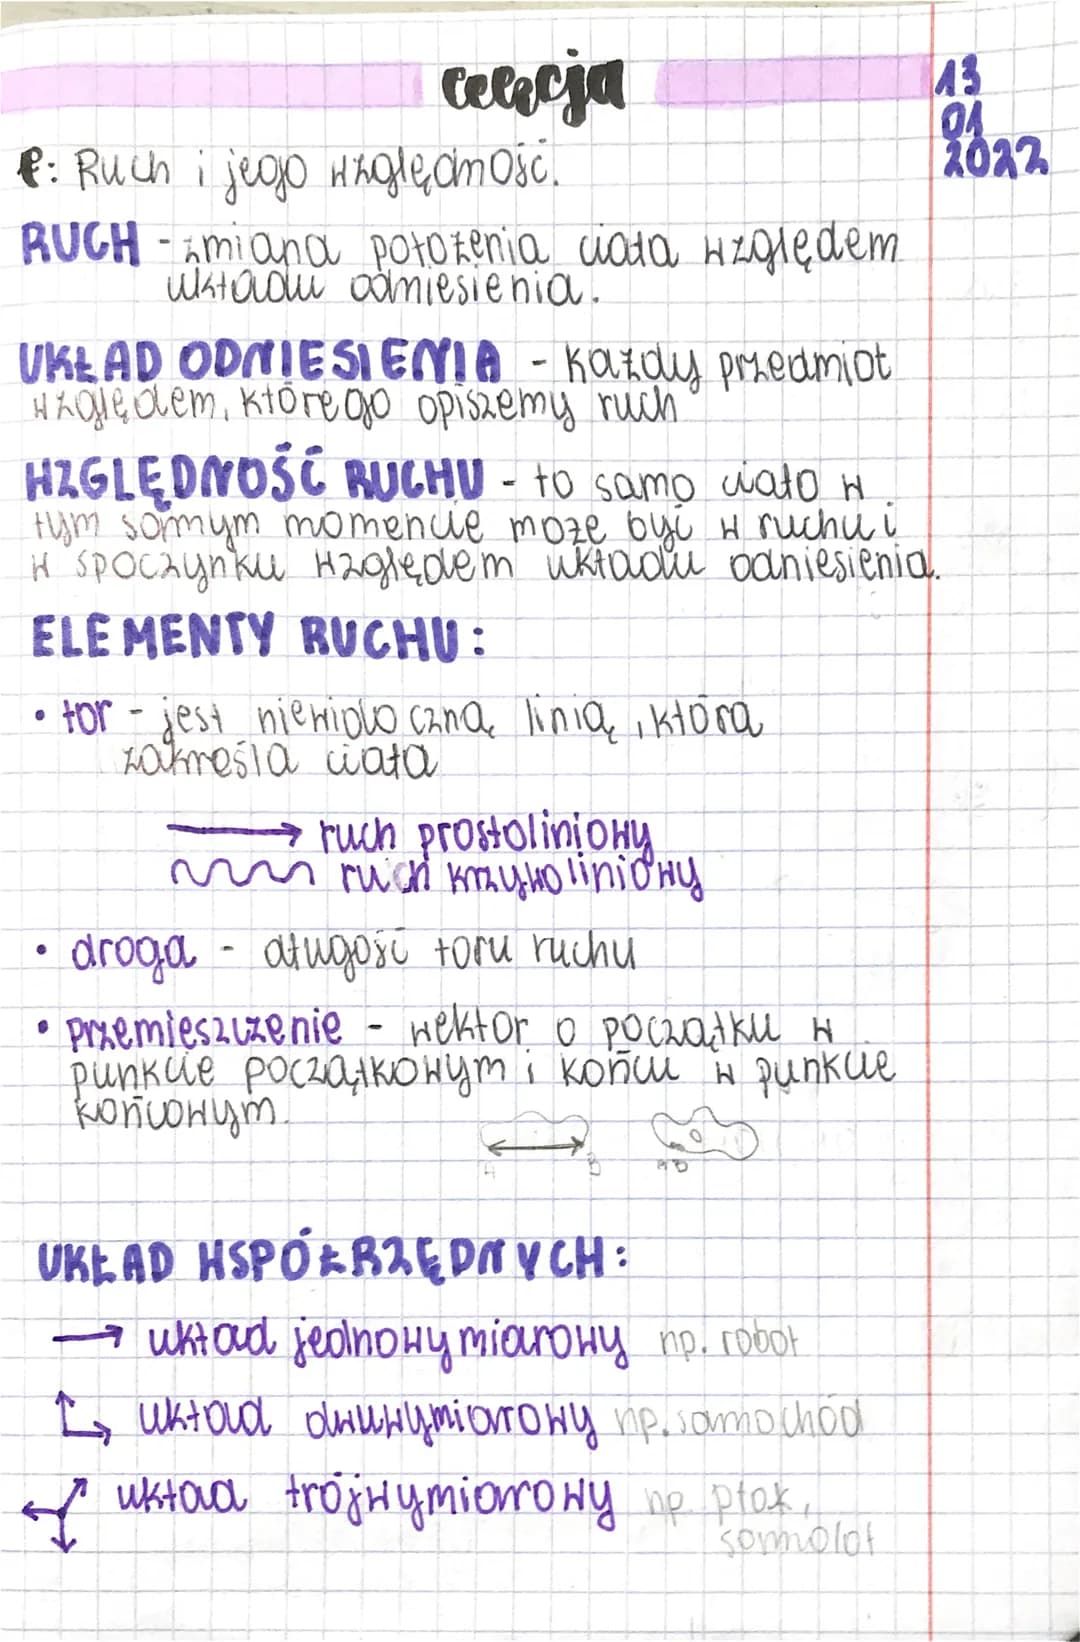 lekcja
13
01
2022
t: Ruch i jego względność.
RUCH - zmiana położenia ciała względem
układu odniesienia.
UKŁAD ODNIESIENIA - każdy przedmiot
względem, którego opiszemy ruch
WZGLĘDNOŚĆ RUCHU - to samo ciało w
tym samym momencie może być w ruchu i
w spoczynku względem układu odniesienia.
ELEMENTY RUCHU:
• tor - jest niewidoczną linią, którą
zakreśla ciała
→ ruch prostoliniowy
ruch krzywoliniowy
• droga - długość toru ruchu
• przemieszczenie - wektor o początku w
punkcie początkowym i końcu w punkcie
końcowym.
A B AB
UKŁAD WSPÓŁRZĘDNYCH:
→ układ jednowymiarowy np. robot
układ dwuwymiarowy np. samochód
układ trójwymiarowy np ptak,
samolot